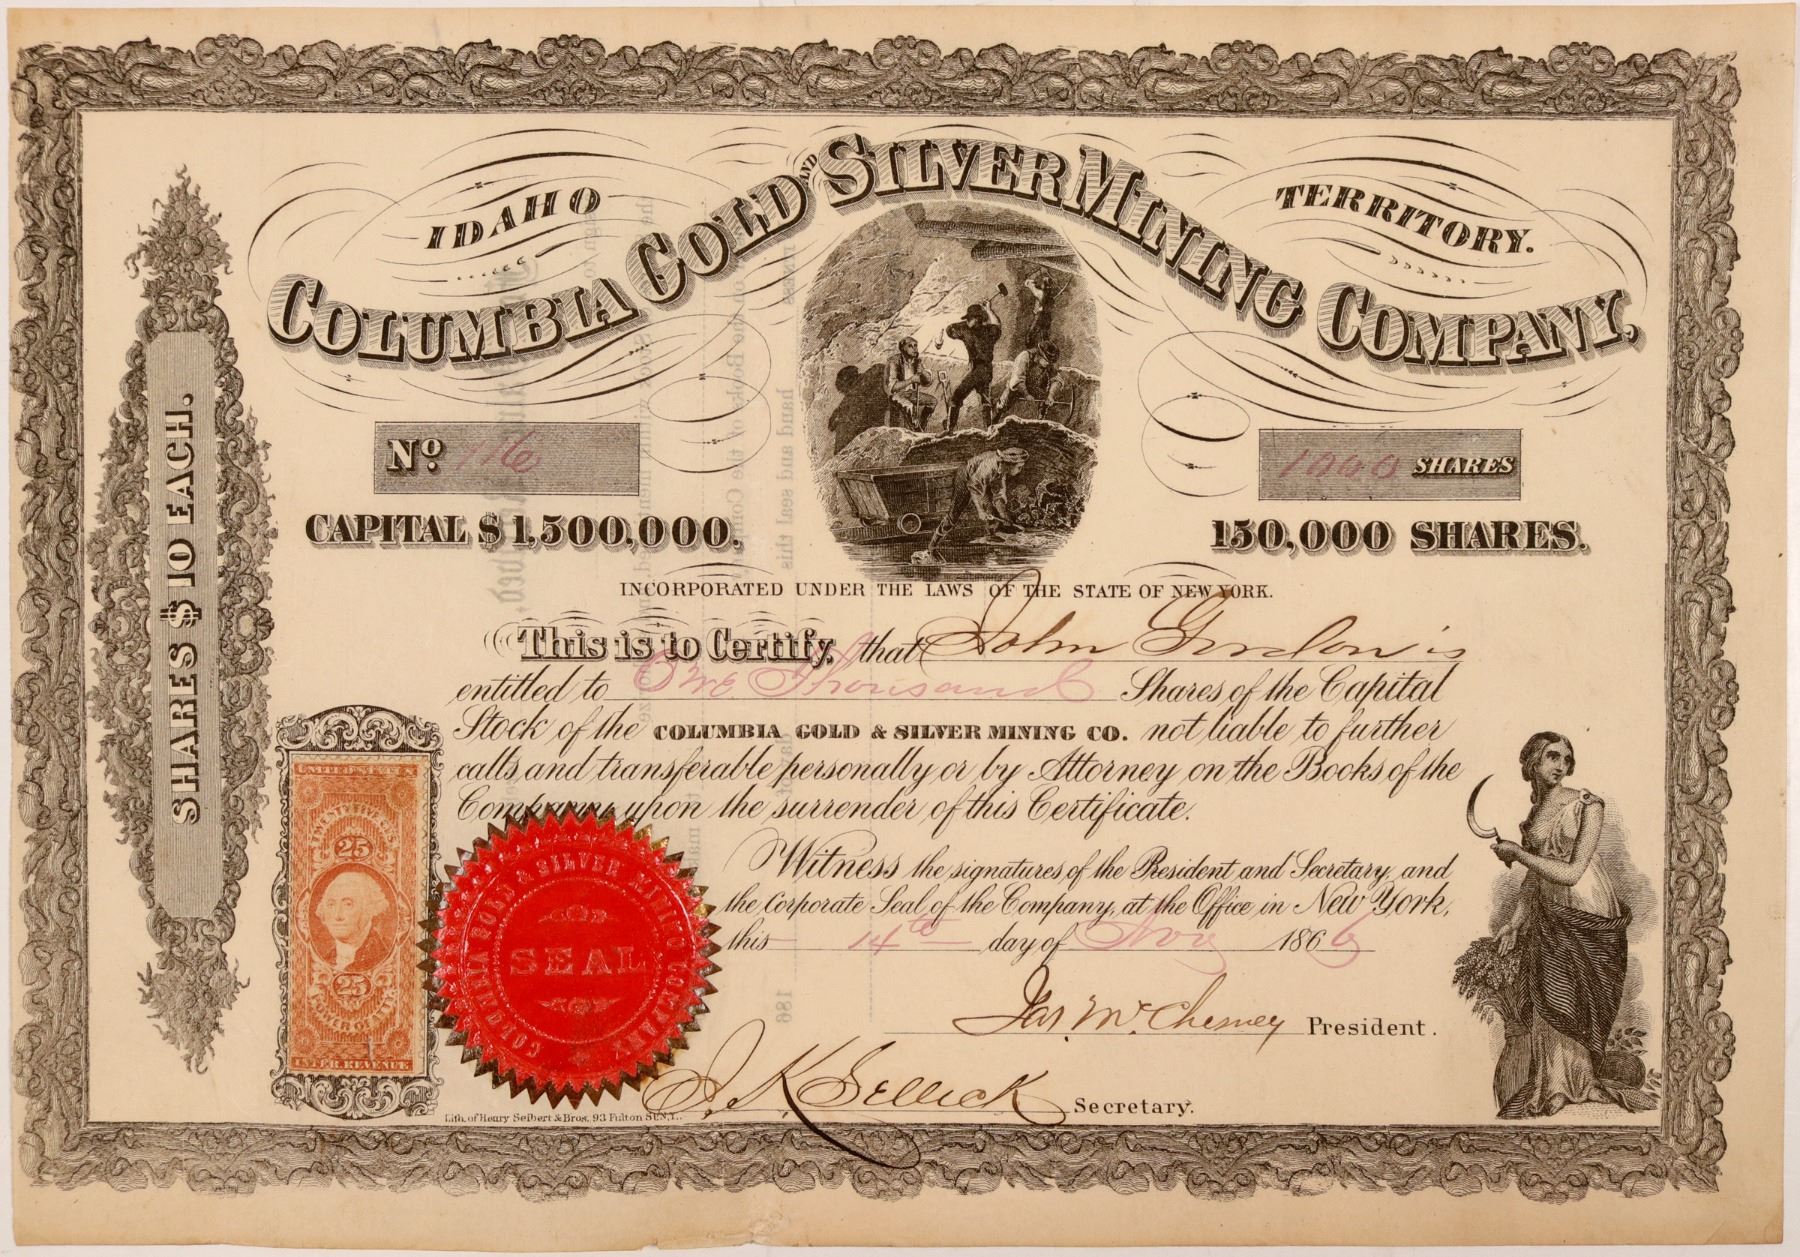 IDAHO TERRITORY.
COLUMBIA GOLD AND SILVER MINING COMPANY,
SHARES $10 EACH.
No. 116
1000 SHARES
CAPITAL $1,500,000.
150,000 SHARES.
INCORPORATED UNDER THE LAWS OF THE STATE OF NEW YORK.
This is to Certify, that John Gordon is
entitled to One Thousand Shares of the Capital
Stock of the COLUMBIA GOLD & SILVER MINING CO. not liable to further
calls, and transferable personally or by Attorney on the Books of the
Company upon the surrender of this Certificate.
Witness the signatures of the President and Secretary, and
the Corporate Seal of the Company, at the Office in New York,
this 14th day of Nov 1866
Jas. McChesney President.
J. K. Selleck Secretary.
UNITED STATES
TWENTY FIVE CTS
25
25
POWER OF ATT'Y
INTER. REVENUE
COLUMBIA GOLD & SILVER MINING COMPANY
SEAL
Lith. of Henry Seibert & Bros. 93 Fulton St. N.Y.